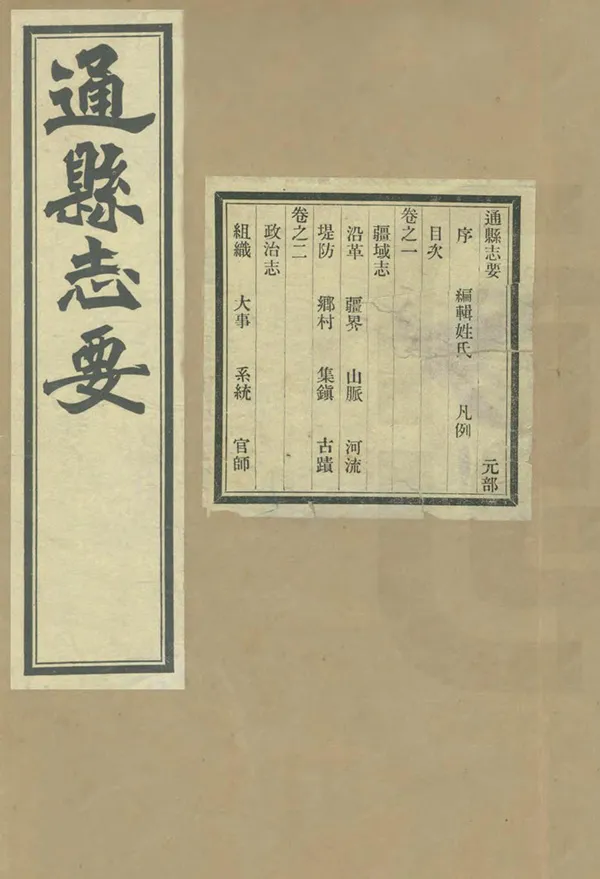 通縣志要
通縣志要 元部
序 編輯姓氏 凡例
目次
卷之一
疆域志
沿革 疆界 山脈 河流
堤防 鄉村 集鎮 古蹟
卷之二
政治志
組織 大事 系統 官師